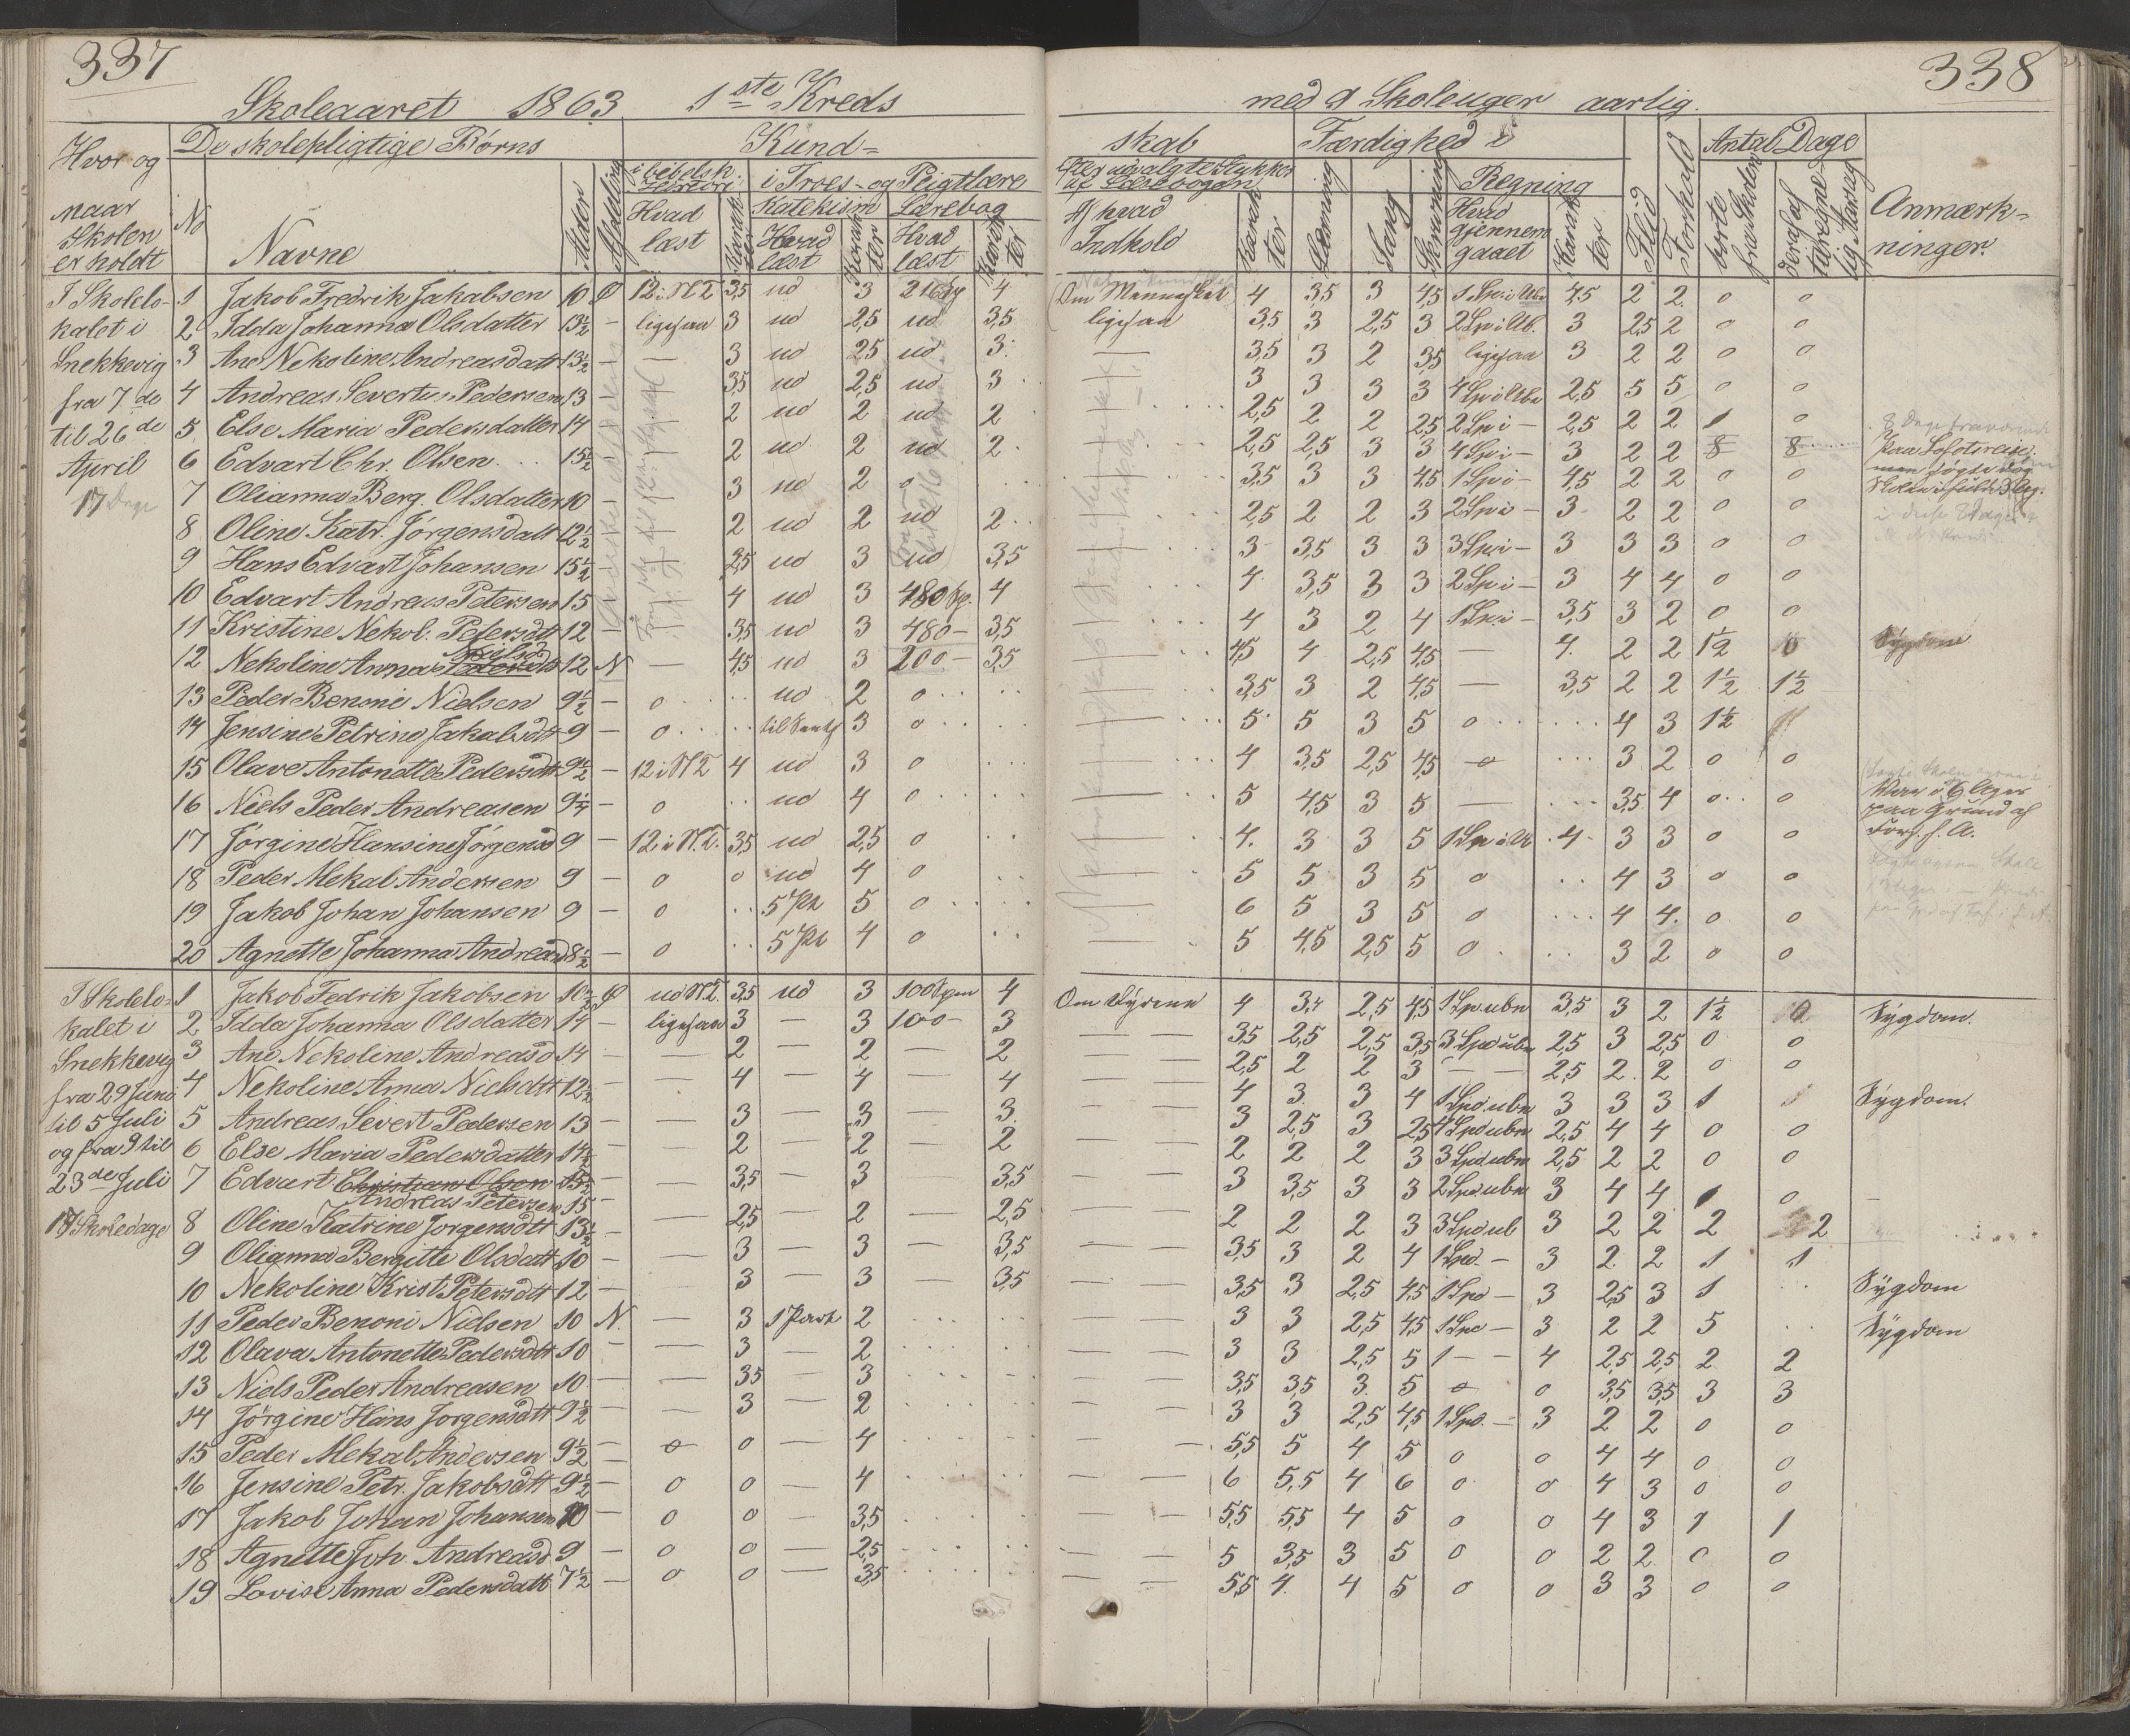 337
Skoleaaret 1863 1ste Kreds
Hvor og naar Skolen er holdt
De skolepligtige Børns
No
Navne
Alder
Afdeling
Kund-
i bibelsk Historie
Hvad læst
Karakter
i Troes- og Pligtlære
Katekism
Hvad læst
Karakter
Lærebog
Hvad læst
Karakter
I Skolelo-
kalet i
Snekkevig
fra 7de
til 26de
April
17 Dage
1 Jakob Fredrik Jakobsen 10 Ø 12 i N T 3,5 ud 3 216 4
2 Idda Johanna Olsdatter 13½ – ligesaa 3 ud 2,5 ud 3,5
3 Ane Nekoline Andreasdatt 13½ – — 3 ud 2,5 ud 3
4 Andreas Severtus Pedersen 13 – — 3,5 ud 2,5 ud 3
5 Else Maria Pedersdatter 14 – — 2 ud 2 ud 2
6 Edvart Chr. Olsen 15½ – — 2 ud 2 ud 2
7 Olianna Berg. Olsdatter 10 – — 3 ud 2 0
8 Oline Katr. Jørgensdatt 12½ – — 2 ud 2 ud 2
9 Hans Edvart Johansen 15½ – — 2,5 ud 3 ud 3,5
10 Edvart Andreas Petersen 15 – — 4 ud 3 480 Sp. 4
11 Kristine Nekol. Petersdtt 12 – — 3,5 ud 3 480 – 3,5
12 Nekoline Anna Nielsd 12 N — 4,5 ud 3 200 – 3,5
13 Peder Benoni Nielsen 9½ – 0 ud 2 0
14 Jensine Petrine Jakobsdtt 9 – 0 3 0
15 Olave Antonette Pedersdtt 9½ – 12 i N T 4 ud 3 0
16 Niels Peder Andreasen 9¼ – 0 ud 4 0
17 Jørgine Hansine Jørgensd 9 – 12 i N.T. 3,5 ud 2,5 0
18 Peder Mekal Andersen 9 – 0 0 ud 4 0
19 Jakob Johan Johansen 9 – 0 5 Pt 5 0
20 Agnette Johanna Andread 8½ – 0 5 Pt 4 0
I Skolelo-
kalet i
Snekkevig
fra 29 Juni
til 5 Juli
og fra 9 til
23de Juli
17 Skoledage
1 Jakob Fedrik Jakobsen 10½ Ø ud N.T. 3,5 ud 3 100 Spm 4
2 Idda Johanna Olsdatter 14 – ligesaa 3 — 3 100 – 3
3 Ane Nekoline Andreasd 14 – — 2 — 2 — 2
4 Nekoline Anna Nielsdtt 12½ – — 4 — 4 — 4
5 Andreas Severt Pedersen 13 – — 3 — 3 — 3
6 Else Maria Pedersdatter 14½ – — 2 — 2 — 2
7 Edvart Christian Olsen 15½ – — 3,5 — 3 3,5
Andreas Petersen 15
8 Oline Katrine Jorgensdtt 13½ – — 2,5 — 2 — 2,5
9 Olianna Bergitte Olsdatt 10 – — 3 — 3 — 3,5
10 Nekoline Krist Petersdtt 12 – — 3 — 3 — 3,5
11 Peder Benoni Nielsen 10 N. — 3 1 Part 2
12 Olava Antonette Pedersdtt 10 – — 3 — 2
13 Niels Peder Andreasen 10 – — 3,5 — 3
14 Jörgine Hans Jorgensdtt 9½ – — 3 — 2
15 Peder Mekal Andersen 9½ – 0 0 — 4
16 Jensine Petr. Jakobsdtt 9½ – 0 0 — 4
17 Jakob Johan Johansen 10 – 0 0 — 3,5
18 Agnette Joh. Andreasd 9 – 0 0 — 2,5
19 Lovise Anna Pedersdatt 7½ – 0 0 — 3,5
338
med 9 Skoleuger aarlig.
skab
Efter udvalgte Stykker af Læsebogen
Af hvad Indhold
Karakter
Færdighed i
Læsning
Sang
Skrivning
Regning
Hvad gjennemgaaet
Karakter
Flid
Forhold
Antal Dage
borte fra Skolen
deraf af
Anmærk-
ninger.
Om Mennesket 4 3,5 3 4,5 4,5 2 2 0 0
ligesaa 3,5 3 2,5 3 2 Sp i Ub. 3 2,5 2 0 0
— 3,5 3 2 3,5 ligesaa 3 2 2 0 0
— 3 3 3 3 2,5 5 5 0 0
— 2,5 2 2 2,5 2 Sp i – 2,5 2 2 1 0
— 2,5 2,5 3 3 4 Sp i – 3 2 2 8 8
paa Lofotreise
— 3,5 3 3 4,5 1 Sp i – 4,5 2 2 0 0
— 2,5 2 2 3 2 Sp i – 3 2 2 0 0
— 3 3,5 3 3 3 Sp i – 3 3 3 0 0
— 4 3,5 3 3 2 Sp i – 3 4 4 0 0
— 4 3 2 4 1 Sp i – 3,5 3 2 0 0
— 4,5 4 2,5 4,5 — 4 2 2 1½ Sygdom
— 3,5 3 2 4,5 — 3,5 2 2 1½ 1½
— 5 5 3 5 0 4 3 1½
— 4 3,5 2,5 4,5 0 3 2 0 0
— 5 4,5 3 5 — 3,5 4 0 0
paa Grund af
— 4 3 3 5 4 3 3 0 0
— 5 5 3 5 0 4 3 0 0
— 6 5 3 5 0 4 4 0 0
— 5 4,5 2,5 5 0 3 2 0 0
Om Dyrene 4 2,5 4,5 1 Sp ubn 3,5 3 2 1½ Sygdom.
— — 3,5 2,5 2,5 3,5 3 Spe ubn 2,5 3 2,5 0 0
— — 2,5 2 2 3 — — 2,5 2 2 0 0
— — 4 3 3 4 1 Spe ubn 3 3 3 1 Sygdom.
— — 3 2,5 3 2,5 4 Spe ubn 2,5 4 4 0 0
— — 2 2 2 3 3 Spe ubn 2,5 2 2 0 0
— — 3 3,5 3 3 2 Spe ubn 3 4 4 1 0
— — 2 2 2 3 3 Spe ub 3 2 2 2 2
— — 3,5 3 2 4 1 Spe. – 3 2 2 1 1
— — 3,5 3 2,5 4,5 1 Spe – 3 2,5 3 1 Sygdom
— — 3 3 2,5 4,5 1 Spe – 3 2 2 5 Sygdom
— — 3 3 2,5 5 1 – – 4 2,5 2,5 2 2
— — 3,5 3,5 3 5 0 0 3,5 3,5 3 3
— — 3 3 2,5 4,5 1 Spe. – 3 2 2 0 0
— — 5,5 5 4 5 0 0 4 4 0 0
— — 6 5,5 4 6 0 0 4 3 0 0
— — 5,5 5,5 4 5 0 0 4 3 1 1
— — 5 3,5 3 5 0 0 2 2 0 0
— — 5,5 4 4 5 0 0 3 3 0 0